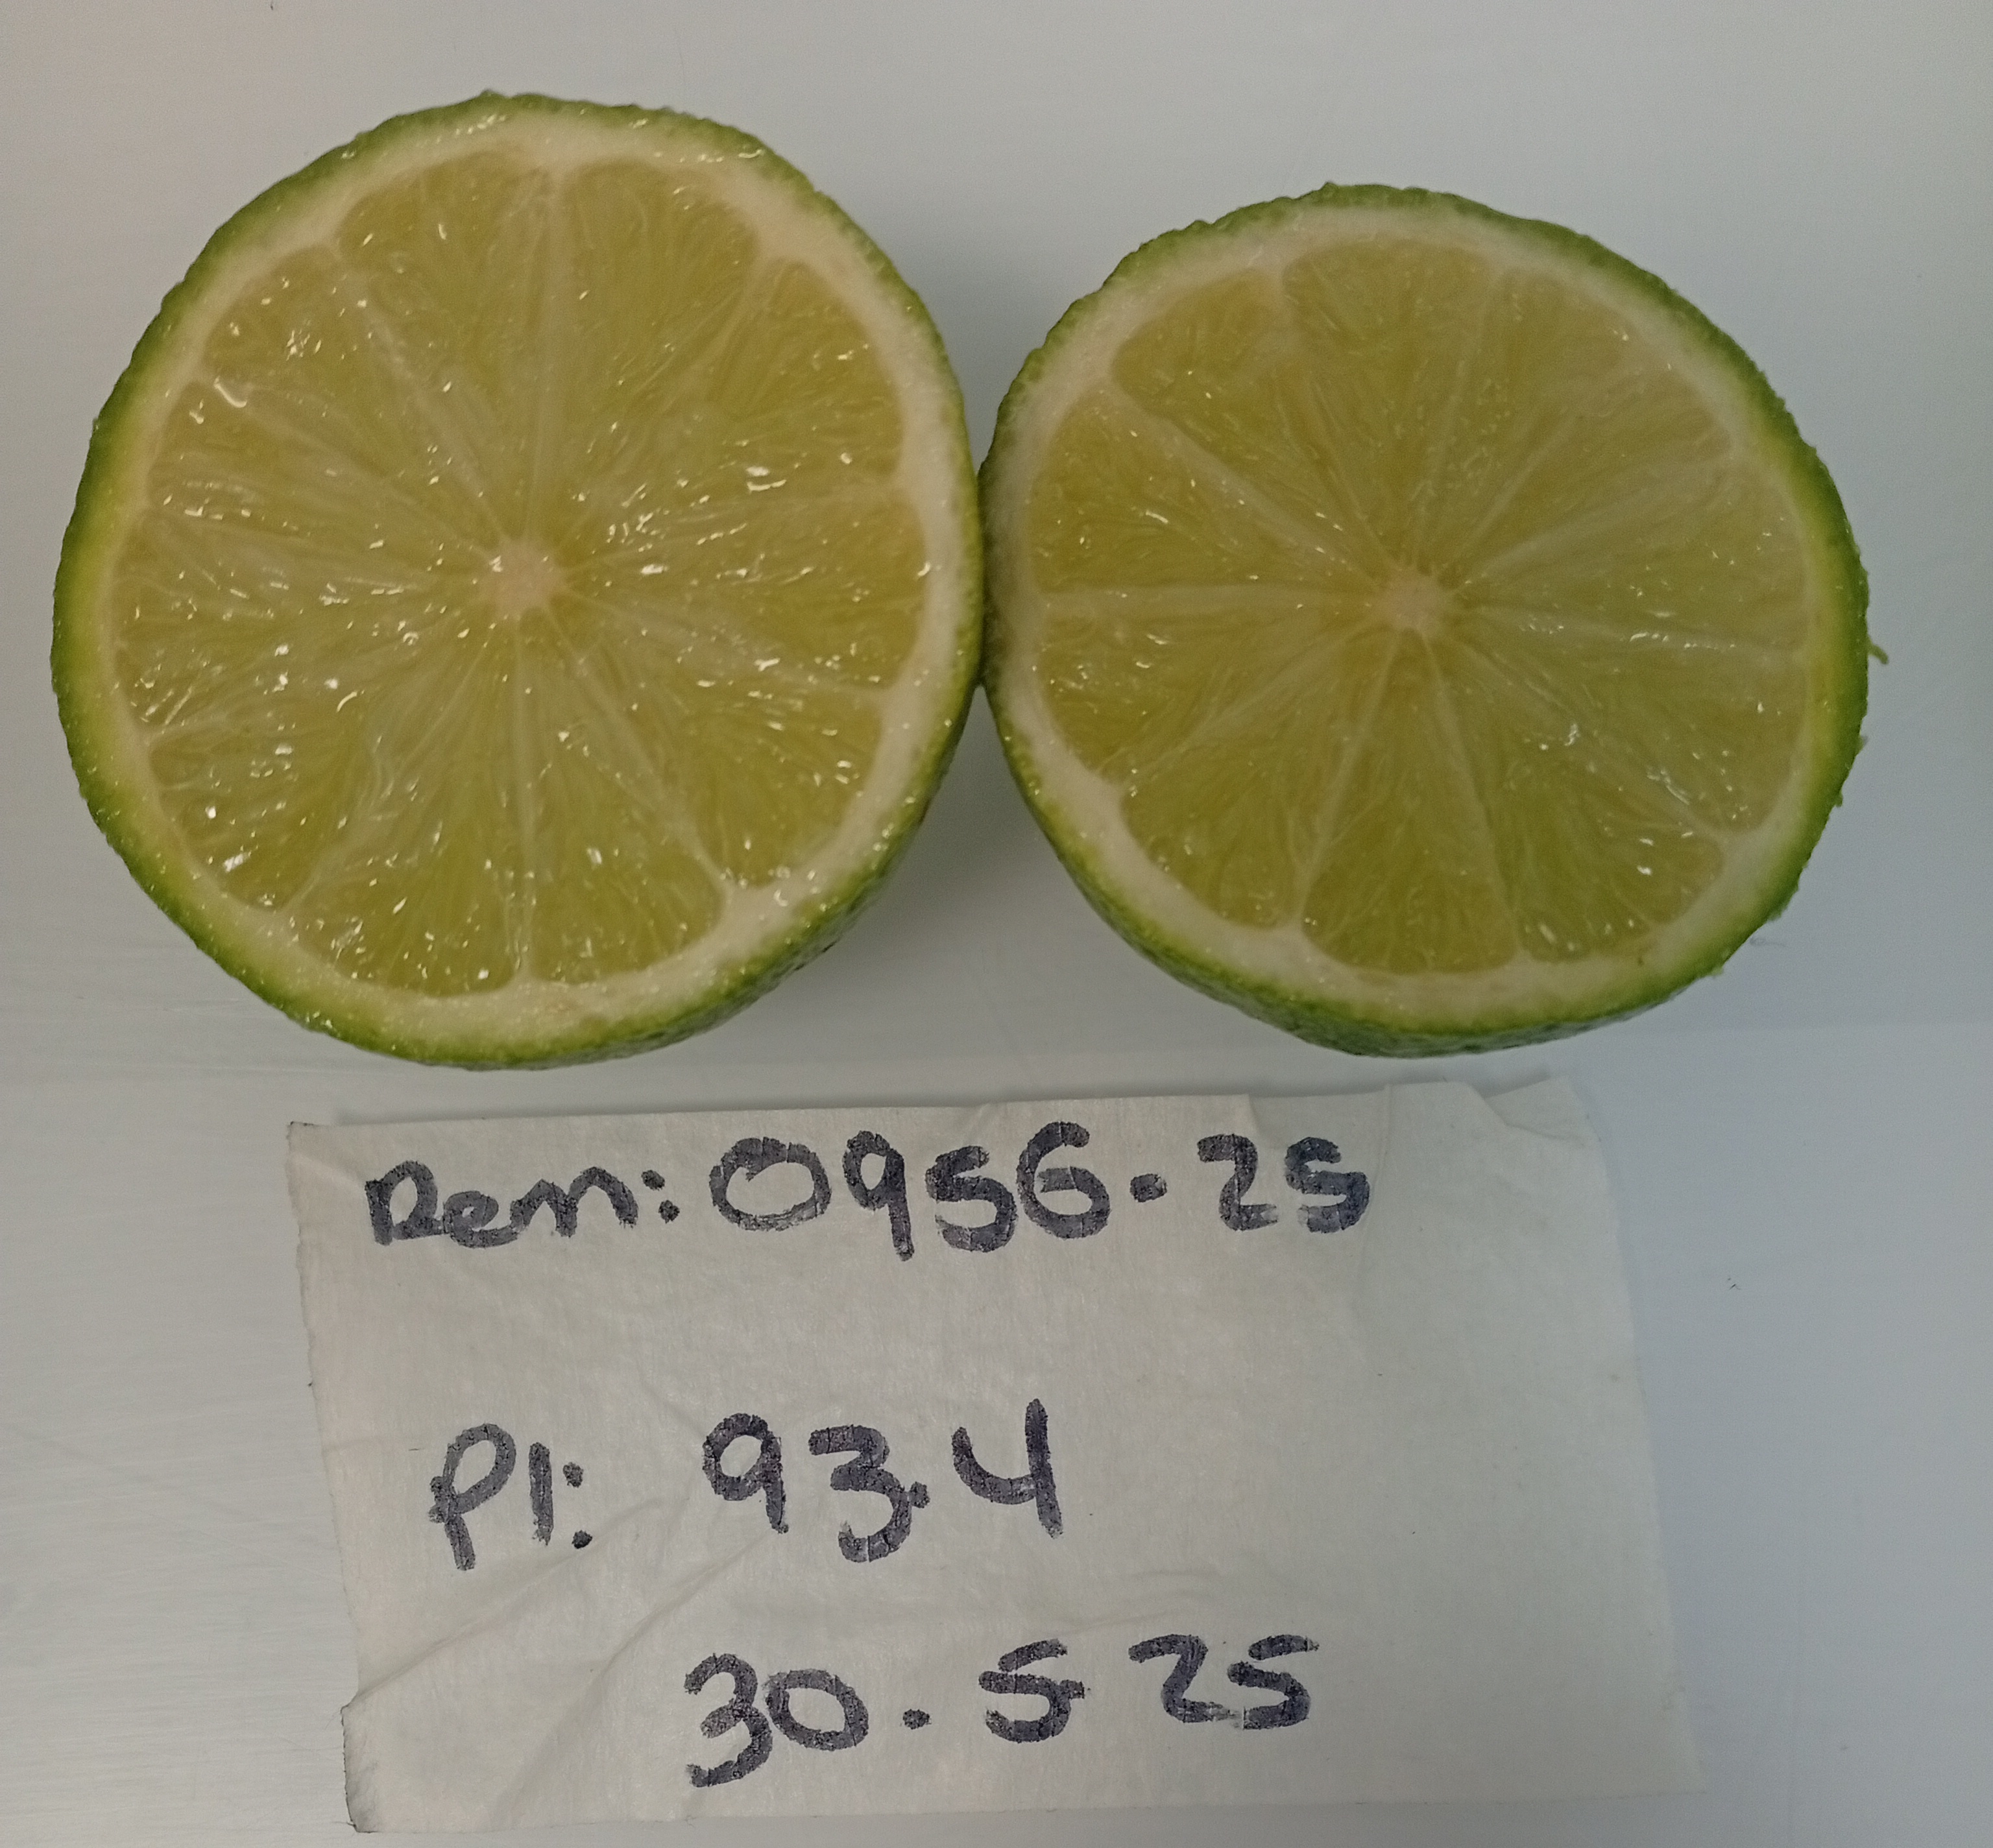 Rem: 0956-25
PI: 93.4
30.5.25